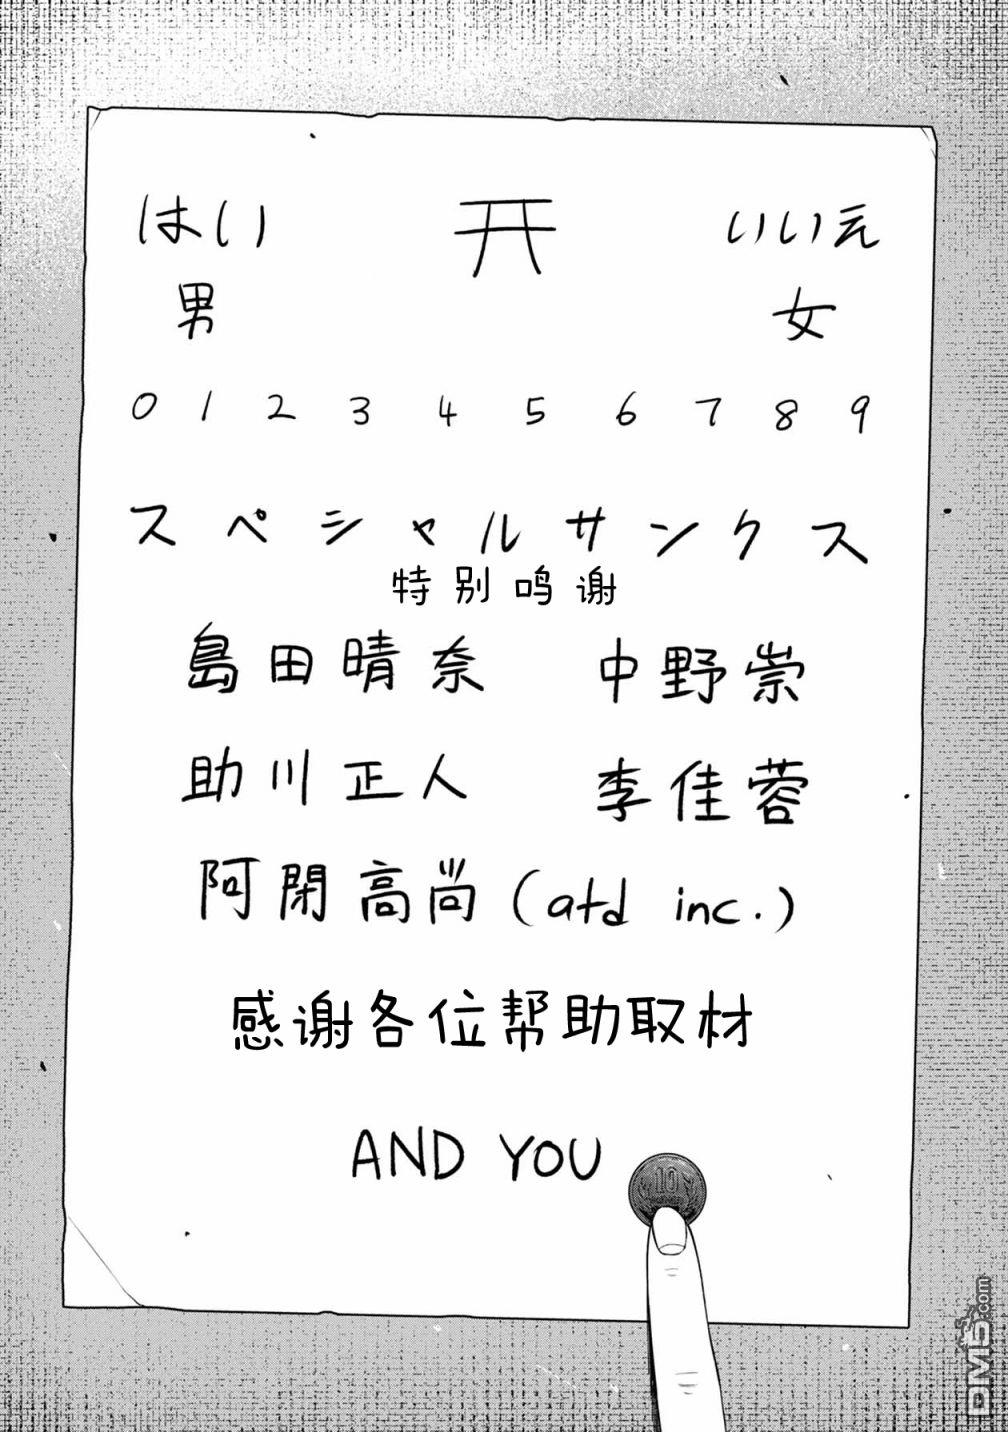 はい いいえ
男 女
0 1 2 3 4 5 6 7 8 9
スペシャルサンクス
特别鸣谢
島田晴奈 中野崇
助川正人 李佳蓉
阿閉高尚(atd inc.)
感谢各位帮助取材
AND YOU
10
DM5.com